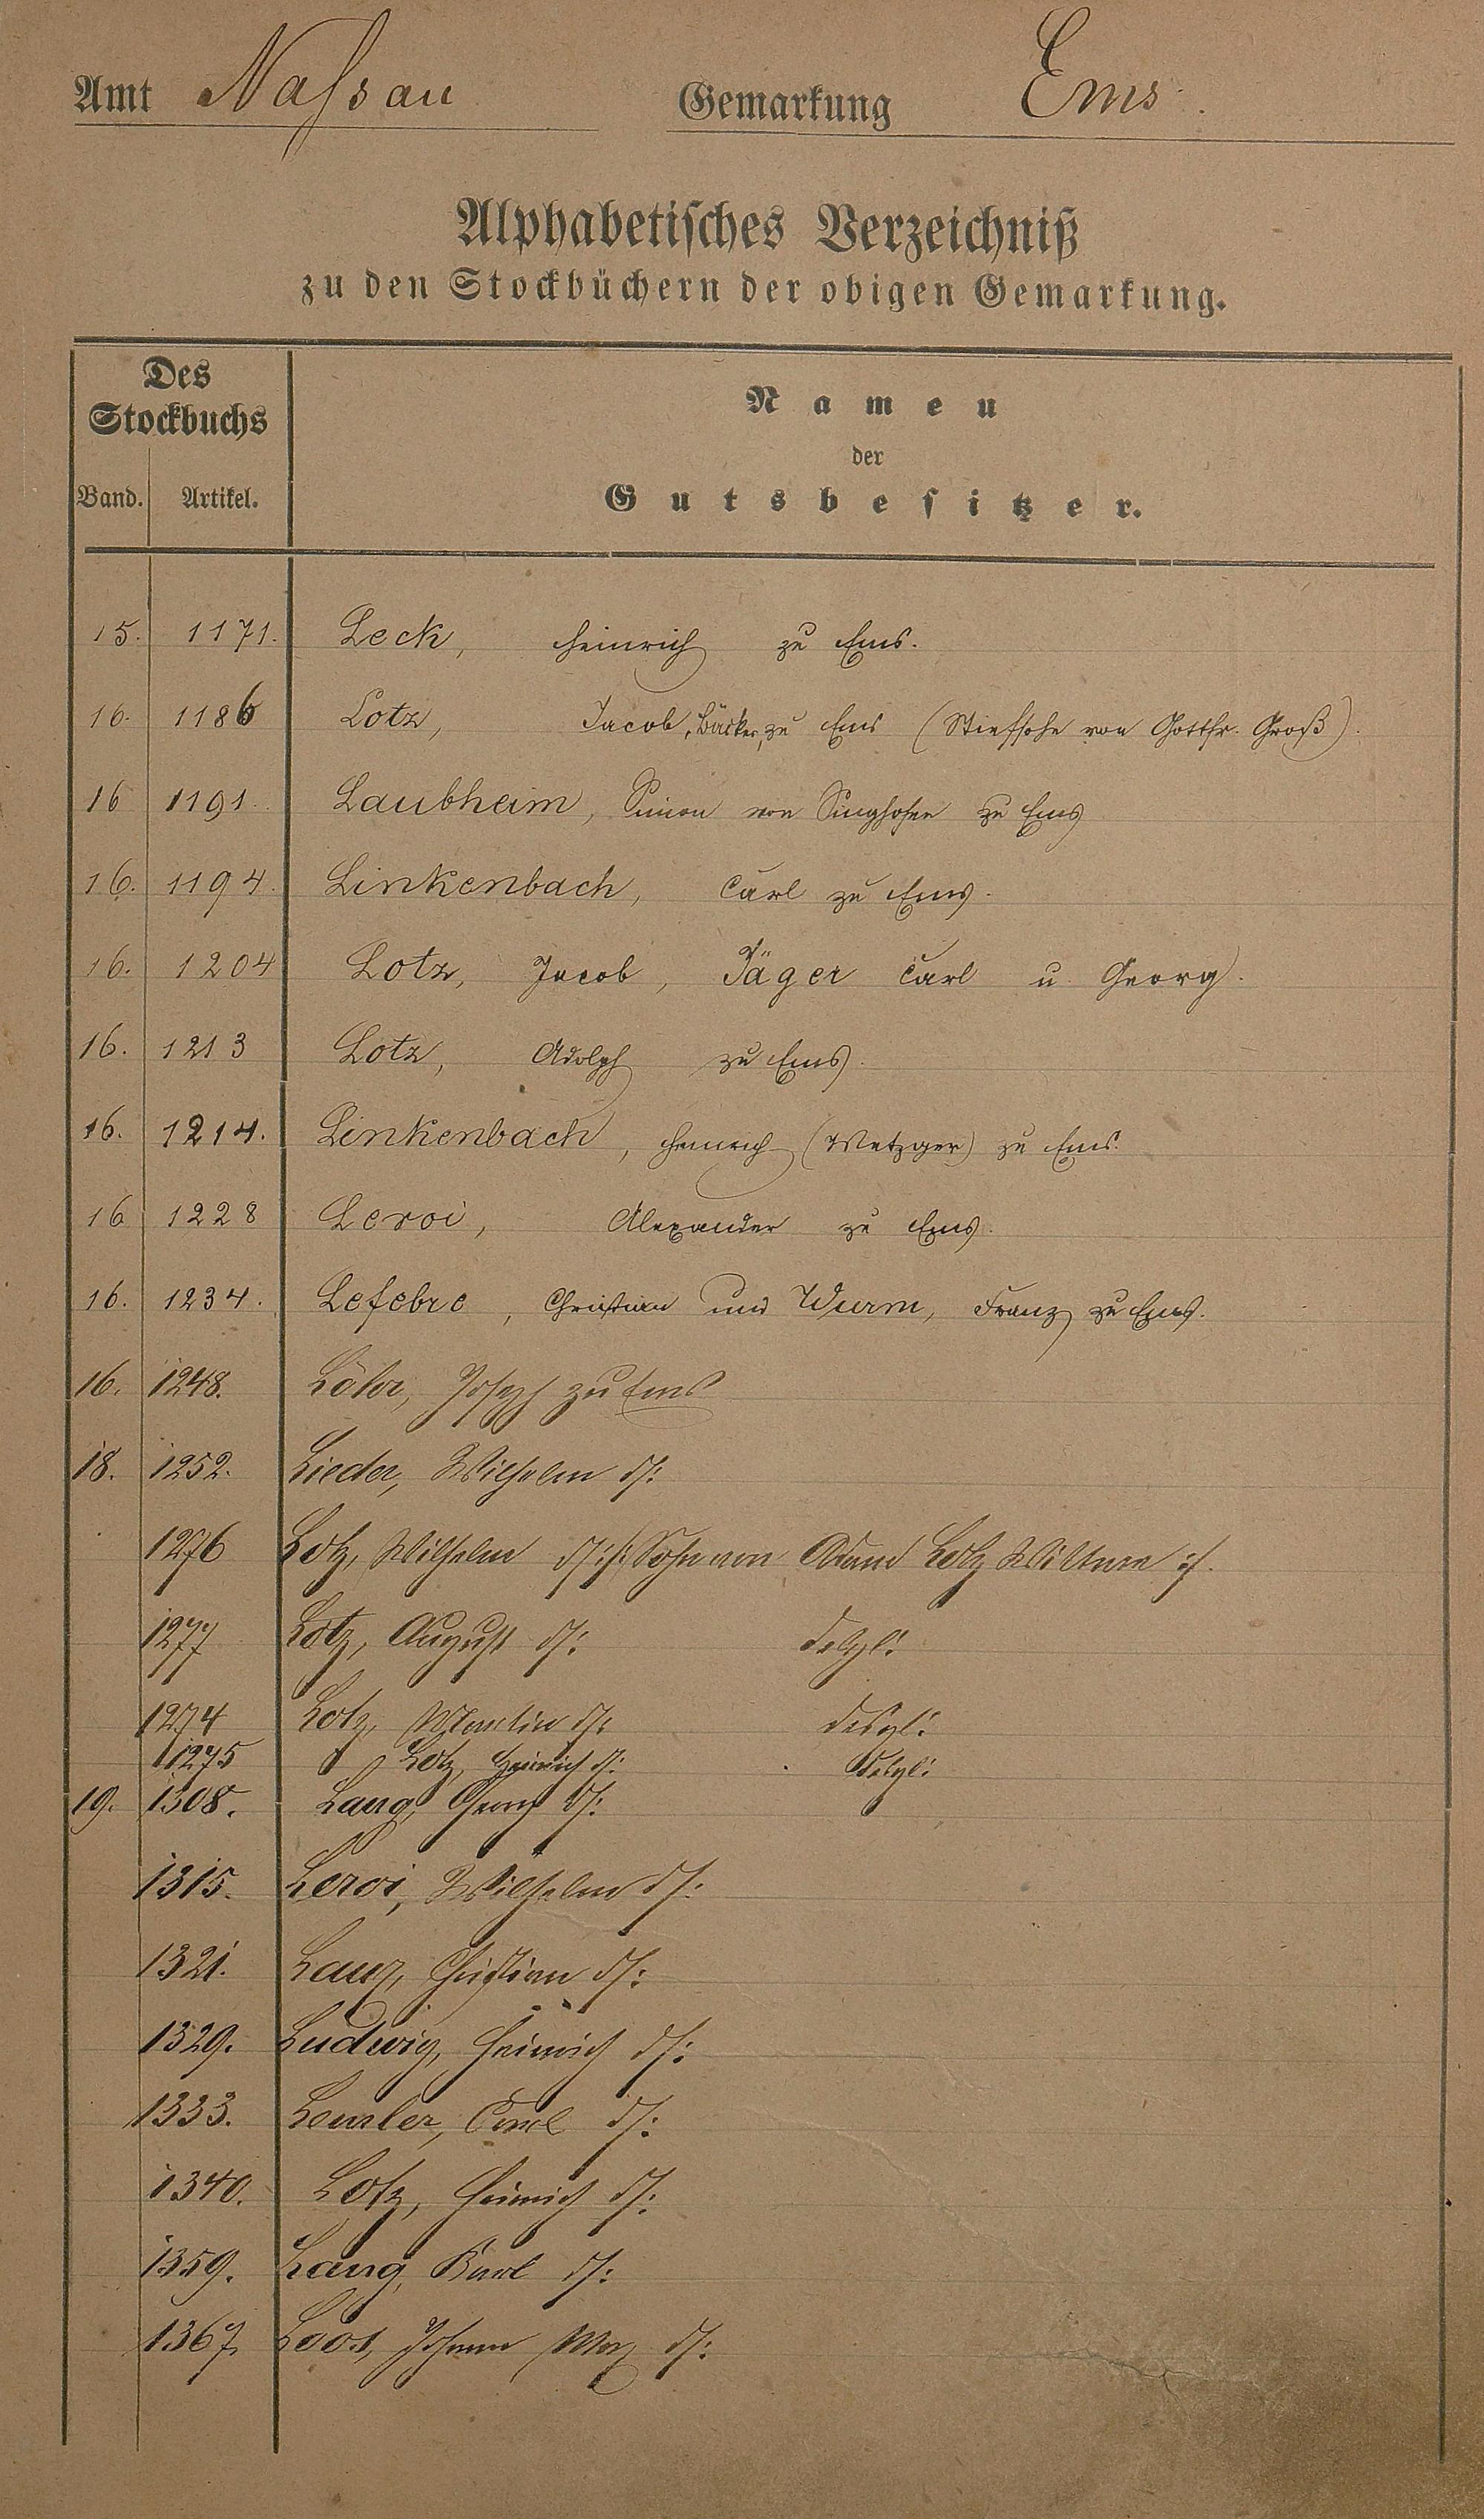 Amt Nassau Gemarkung Ems.
Alphabetisches Verzeichniß
zu den Stockbüchern der obigen Gemarkung.
Des
Stockbuchs
Band. Artikel.
Namen
der
Gutsbesitzer.
15. 1171. Leck, Heinrich zu Ems.
16. 1186 Lotz, Jacob, Bäcker, zu Ems (Stiefsohn von Gottfr. Groß).
16 1191. Laubheim, Simon von Singhofen zu Ems
16. 1194. Linkenbach, Carl zu Ems.
16. 1204 Lotz, Jacob, Jäger Carl u. Georg.
16. 1213 Lotz, Adolph zu Ems.
16. 1214. Linkenbach, Heinrich (Metzger) zu Ems.
16 1228 Leroi, Alexander zu Ems.
16. 1234. Lefebre, Christian und Wurm, Franz zu Ems.
16. 1248. Löhr, Joseph zu Ems
18. 1252. Lieder, Wilhelm ds:
1276 Lotz, Wilhelm ds: /: Sohn von Adam Lotz Wittwe :/.
1277 Lotz, August ds: desgl:
1274 Lotz, Martin ds: desgl:
1275 Lotz, Heinrich ds: desgl:
19. 1308. Lang, Georg ds:
1315. Leroi, Wilhelm ds:
1321. Christian ds:
1329. Ludwig, Heinrich ds:
1333. Carl ds:
1340. Lotz, Heinrich ds:
1359. Lang, Karl ds:
1367 Loos, Johann ds: